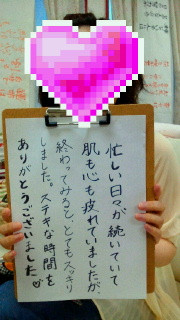 忙しい日々が続いていて
肌も心も疲れていましたが、
終わってみると、とてもスッキリ
しました。ステキな時間を
ありがとうございました♡